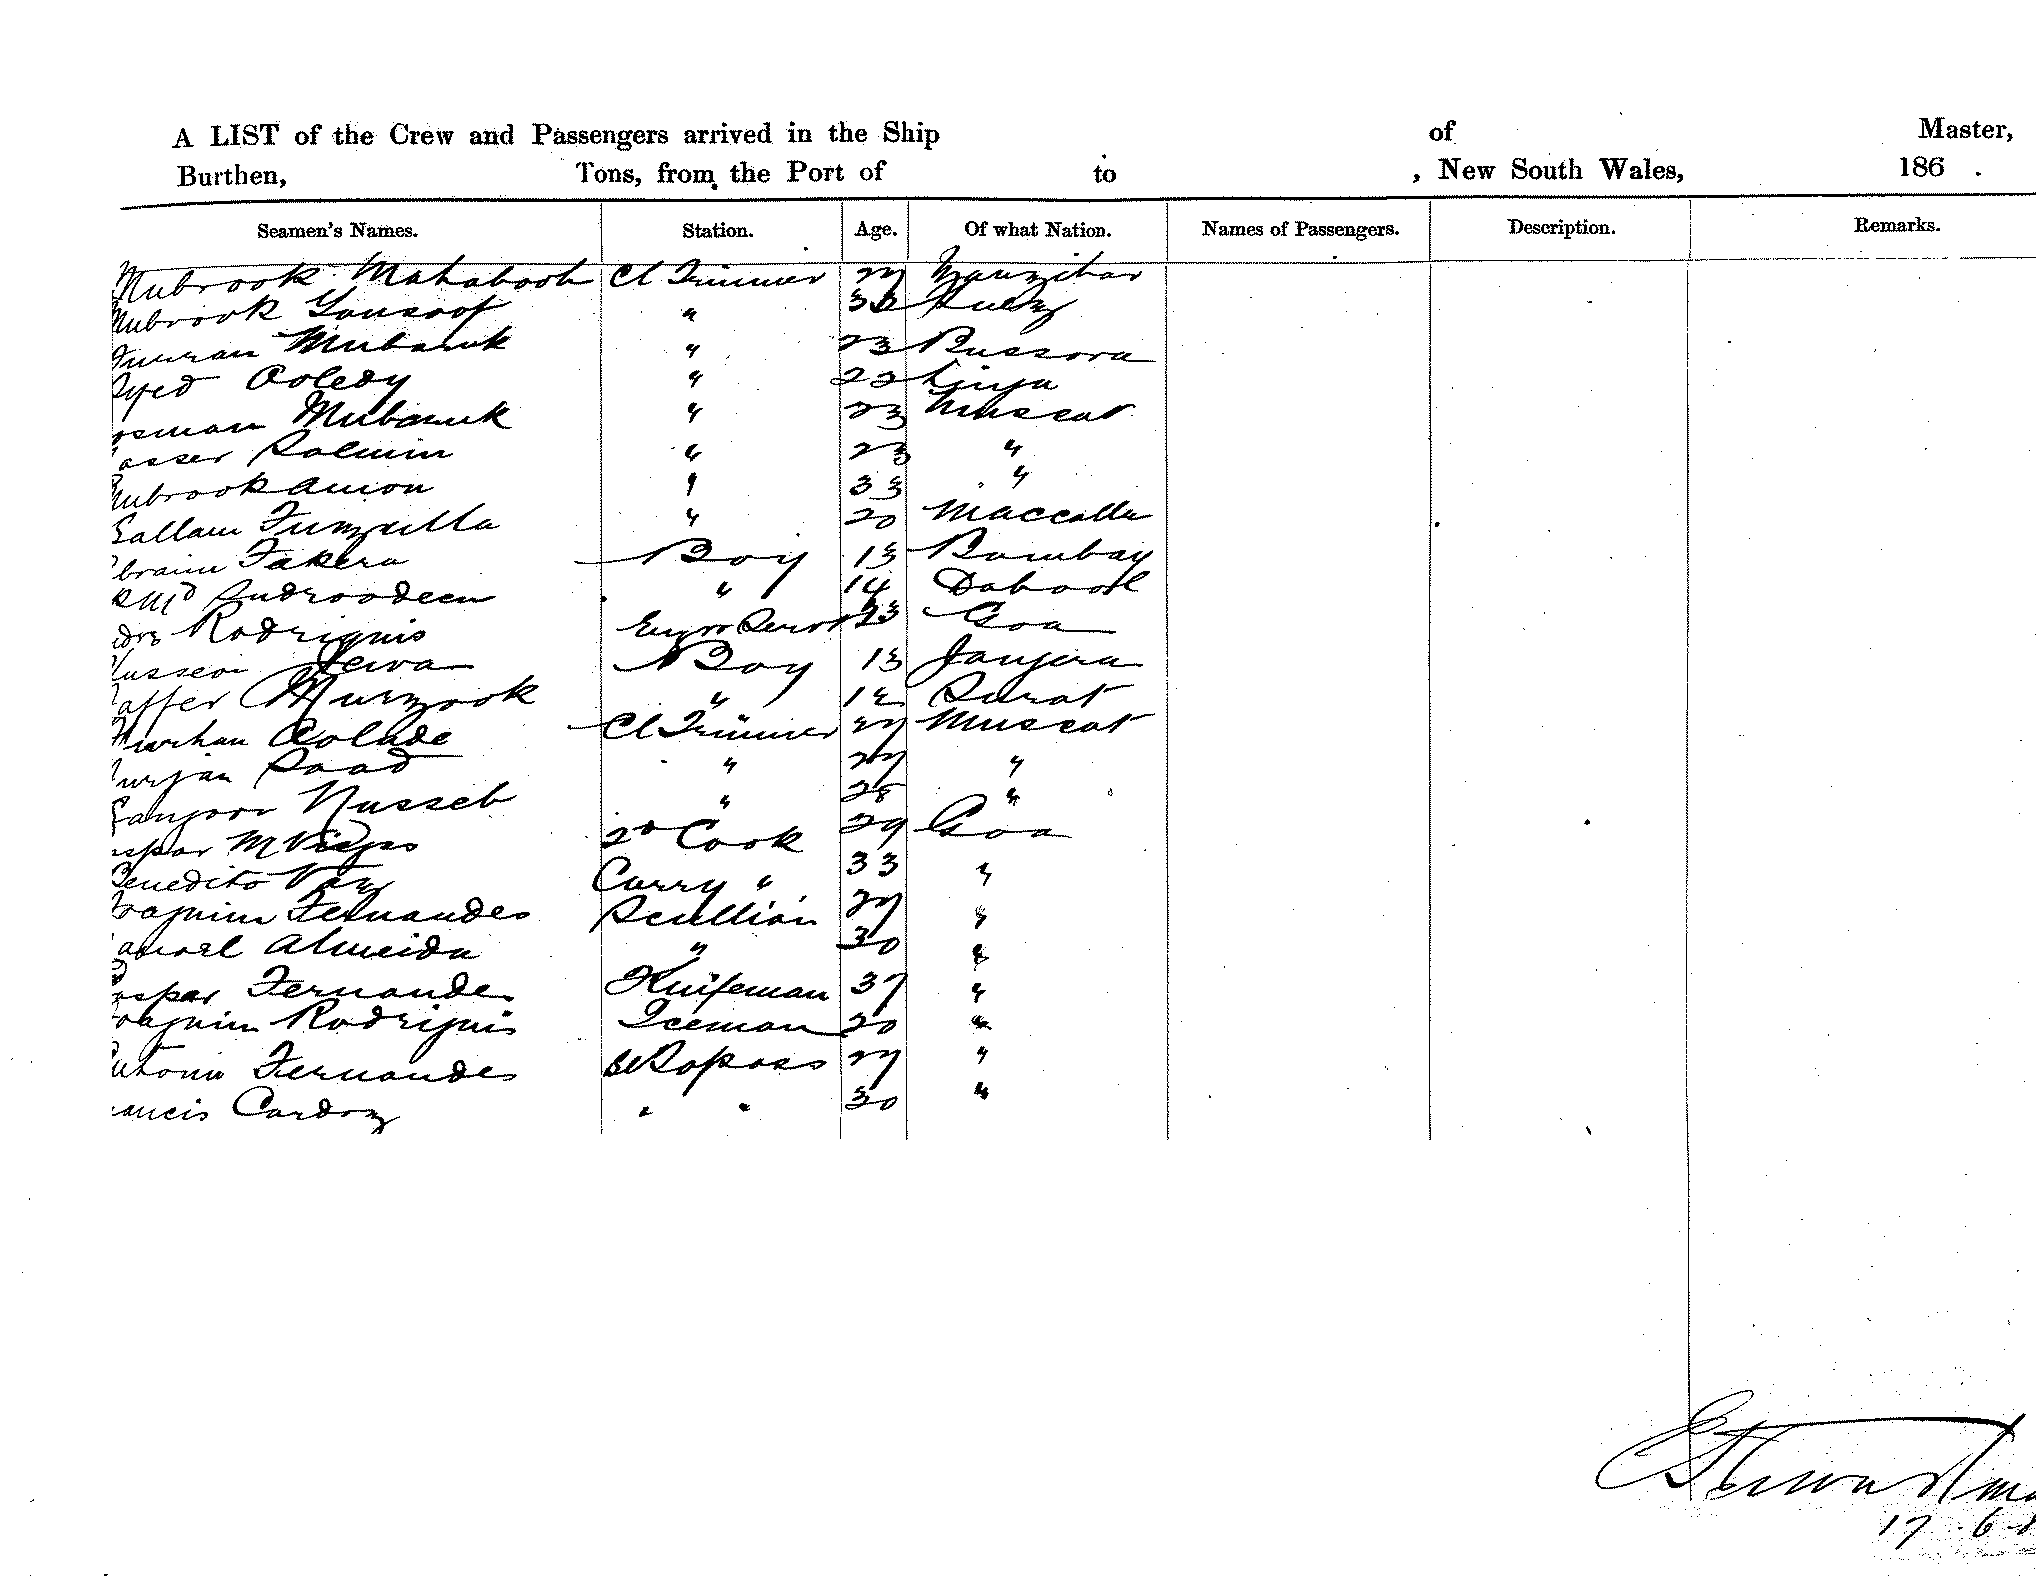 A LIST of the Crew and Passengers arrived in the Ship of Master,
Burthen, Tons, from the Port of to , New South Wales, 186 .
Seamen's Names. Station. Age. Of what Nation. Names of Passengers. Description. Remarks.
Mubrook Mahaboob Cl Trimmer 27 Zanzibar
Mubrook Yousoof " 33 Suez
Mubaruk " 23 Bussora
Syed " 22 Linga
osman Mubaruk " 23 Muscat
asser Salmin " 23 "
Mubrook " 33 "
Sallam " 20 Maccalla
braim Fakera Boy 13 Bombay
Md " 14 Dabool
Rodriguis 23 Goa
ussen Jewa Boy 13 Janjera
affer Murzook " 12 Surat
Cl Trimmer 27 Muscat
urjan Saad " 27 "
Nusseb " 28 "
aspar M 2d Cook 29 Goa
Benedito Vaz Curry " 33 "
oaquim Fernandes Scullion 27 "
anoel Almeida " 30 "
aspar Fernandes Knifeman 37 "
oaquim Rodriguis Iceman 20 "
ntonio Fernandes Bl Topass 27 "
rancis Cardoz " " 30 "
17 . 6